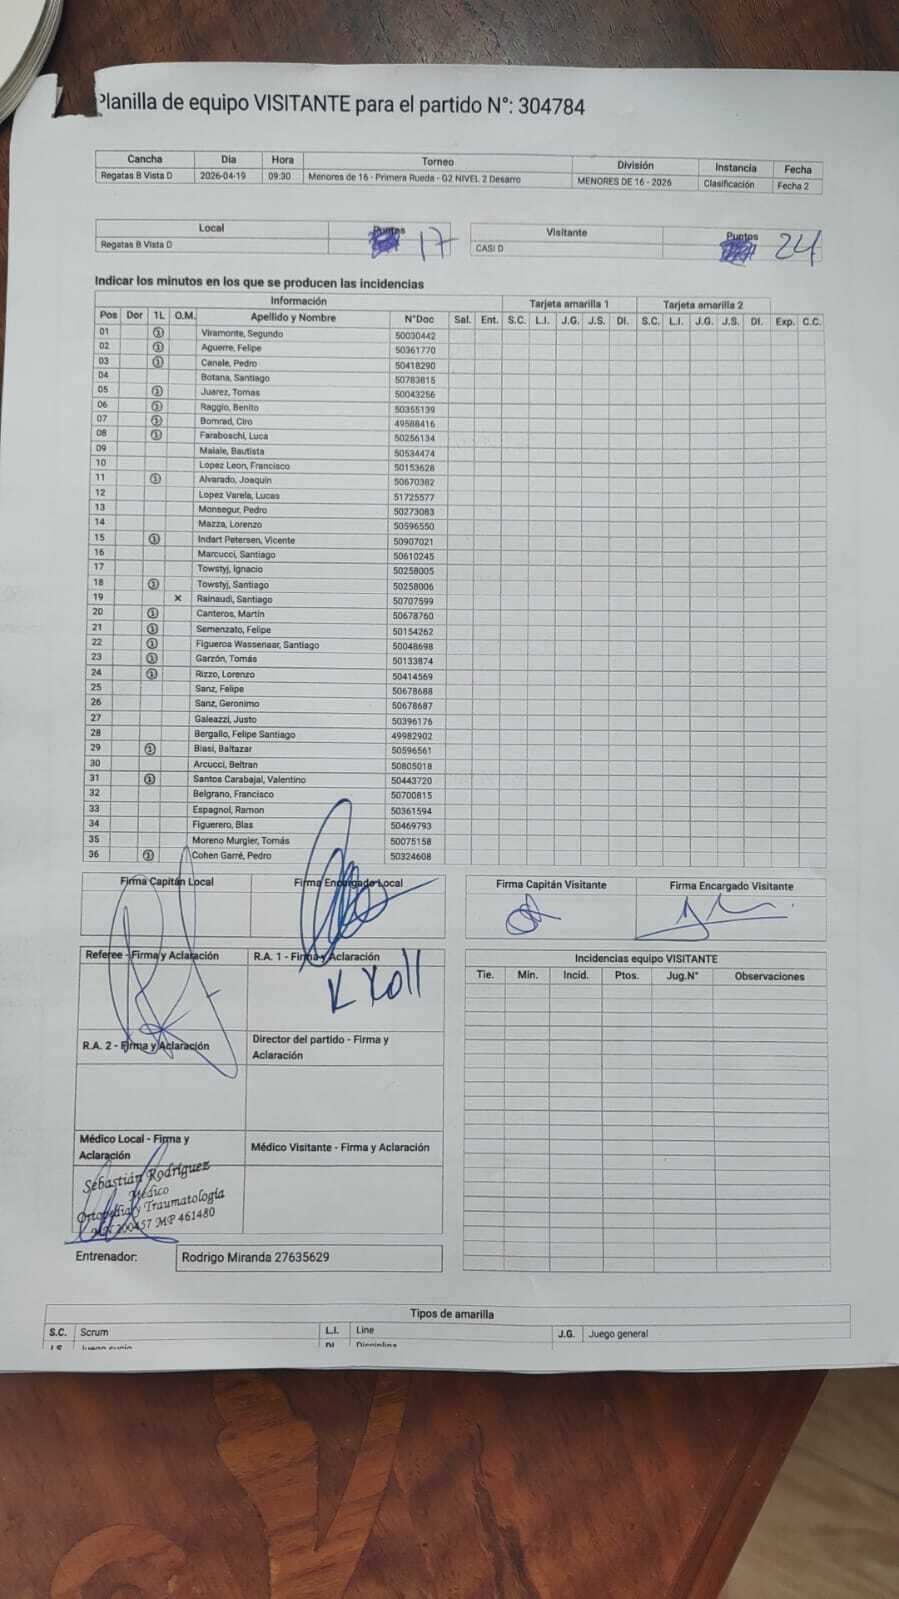 Planilla de equipo VISITANTE para el partido N°: 304784
Cancha Dia Hora Torneo División Instancia Fecha
Regatas B Vista D 2026-04-19 09:30 Menores de 16 - Primera Rueda - G2 NIVEL 2 Desarro MENORES DE 16 - 2026 Clasificación Fecha 2
Local Puntos Visitante Puntos
Regatas B Vista D 17 CASI D 24
Indicar los minutos en los que se producen las incidencias
Información Tarjeta amarilla 1 Tarjeta amarilla 2
Pos Dor 1L O.M. Apellido y Nombre N°Doc Sal. Ent. S.C. L.I. J.G. J.S. DI. S.C. L.I. J.G. J.S. DI. Exp. C.C.
01 1 Viramonte, Segundo 50030442
02 1 Aguerre, Felipe 50361770
03 1 Canale, Pedro 50418290
04 Botana, Santiago 50783815
05 1 Juarez, Tomas 50043256
06 1 Raggio, Benito 50355139
07 1 Bomrad, Ciro 49588416
08 1 Faraboschi, Luca 50256134
09 Maiale, Bautista 50534474
10 Lopez Leon, Francisco 50153628
11 1 Alvarado, Joaquin 50670382
12 Lopez Varela, Lucas 51725577
13 Monsegur, Pedro 50273083
14 Mazza, Lorenzo 50596550
15 1 Indart Petersen, Vicente 50907021
16 Marcucci, Santiago 50610245
17 Towstyj, Ignacio 50258005
18 1 Towstyj, Santiago 50258006
19 X Rainaudi, Santiago 50707599
20 1 Canteros, Martin 50678760
21 1 Semenzato, Felipe 50154262
22 1 Figueroa Wassenaar, Santiago 50048698
23 1 Garzón, Tomás 50133874
24 1 Rizzo, Lorenzo 50414569
25 Sanz, Felipe 50678688
26 Sanz, Geronimo 50678687
27 Galeazzi, Justo 50396176
28 Bergallo, Felipe Santiago 49982902
29 1 Biasi, Baltazar 50596561
30 Arcucci, Beltran 50805018
31 1 Santos Carabajal, Valentino 50443720
32 Belgrano, Francisco 50700815
33 Espagnol, Ramon 50361594
34 Figuerero, Blas 50469793
35 Moreno Murgier, Tomás 50075158
36 1 Cohen Garré, Pedro 50324608
Firma Capitán Local Firma Encargado Local Firma Capitán Visitante Firma Encargado Visitante
Referee - Firma y Aclaración R.A. 1 - Firma y Aclaración Incidencias equipo VISITANTE
Tie. Min. Incid. Ptos. Jug.N° Observaciones
R.A. 2 - Firma y Aclaración Director del partido - Firma y Aclaración
Médico Local - Firma y Aclaración Médico Visitante - Firma y Aclaración
Sebastián Rodríguez
Médico
Ortopedia y Traumatología
200457 MP 461480
Entrenador: Rodrigo Miranda 27635629
Tipos de amarilla
S.C. Scrum L.I. Line J.G. Juego general
J.S. Juego sucio DI. Disciplina